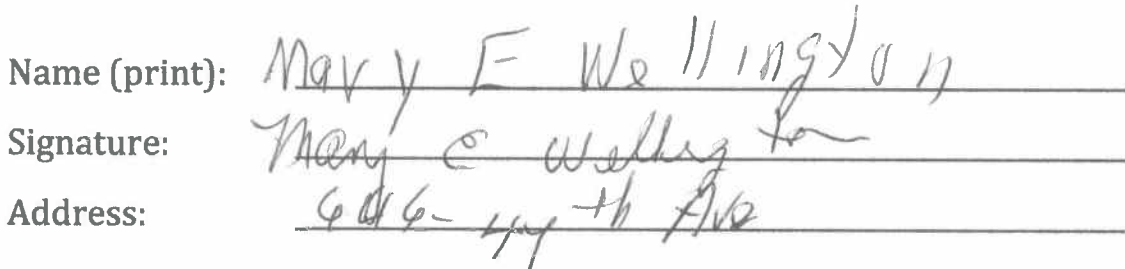 Name (print): Mary E Wellington
Signature: Mary E Wellington
Address: 606- 44th Ave